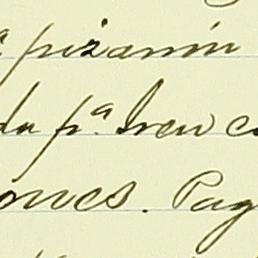 pizarrin
da pª. Irew c
ones. Pag